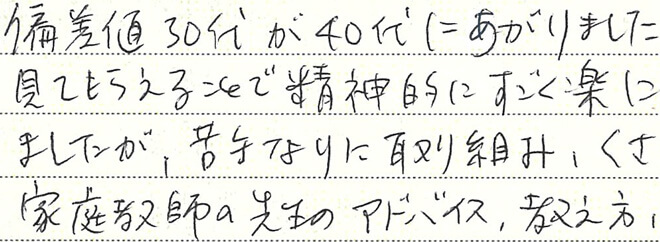 偏差値30代が40代にあがりました
見てもらえることで精神的にすごく楽に
ましたが、苦手なりに取り組み、くさ
家庭教師の先生のアドバイス、教え方、